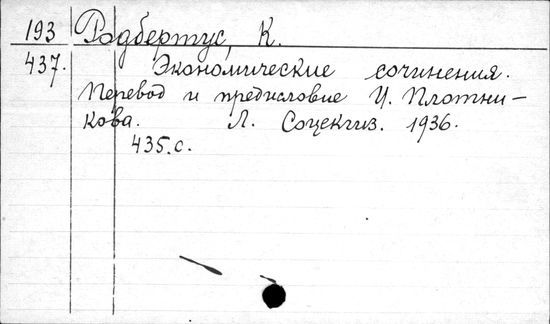 193 Родбертус, К.
437. Экономические сочинения.
Перевод и предисловие И. Плотни-
кова. Л. Соцекгиз. 1936.
435.с.